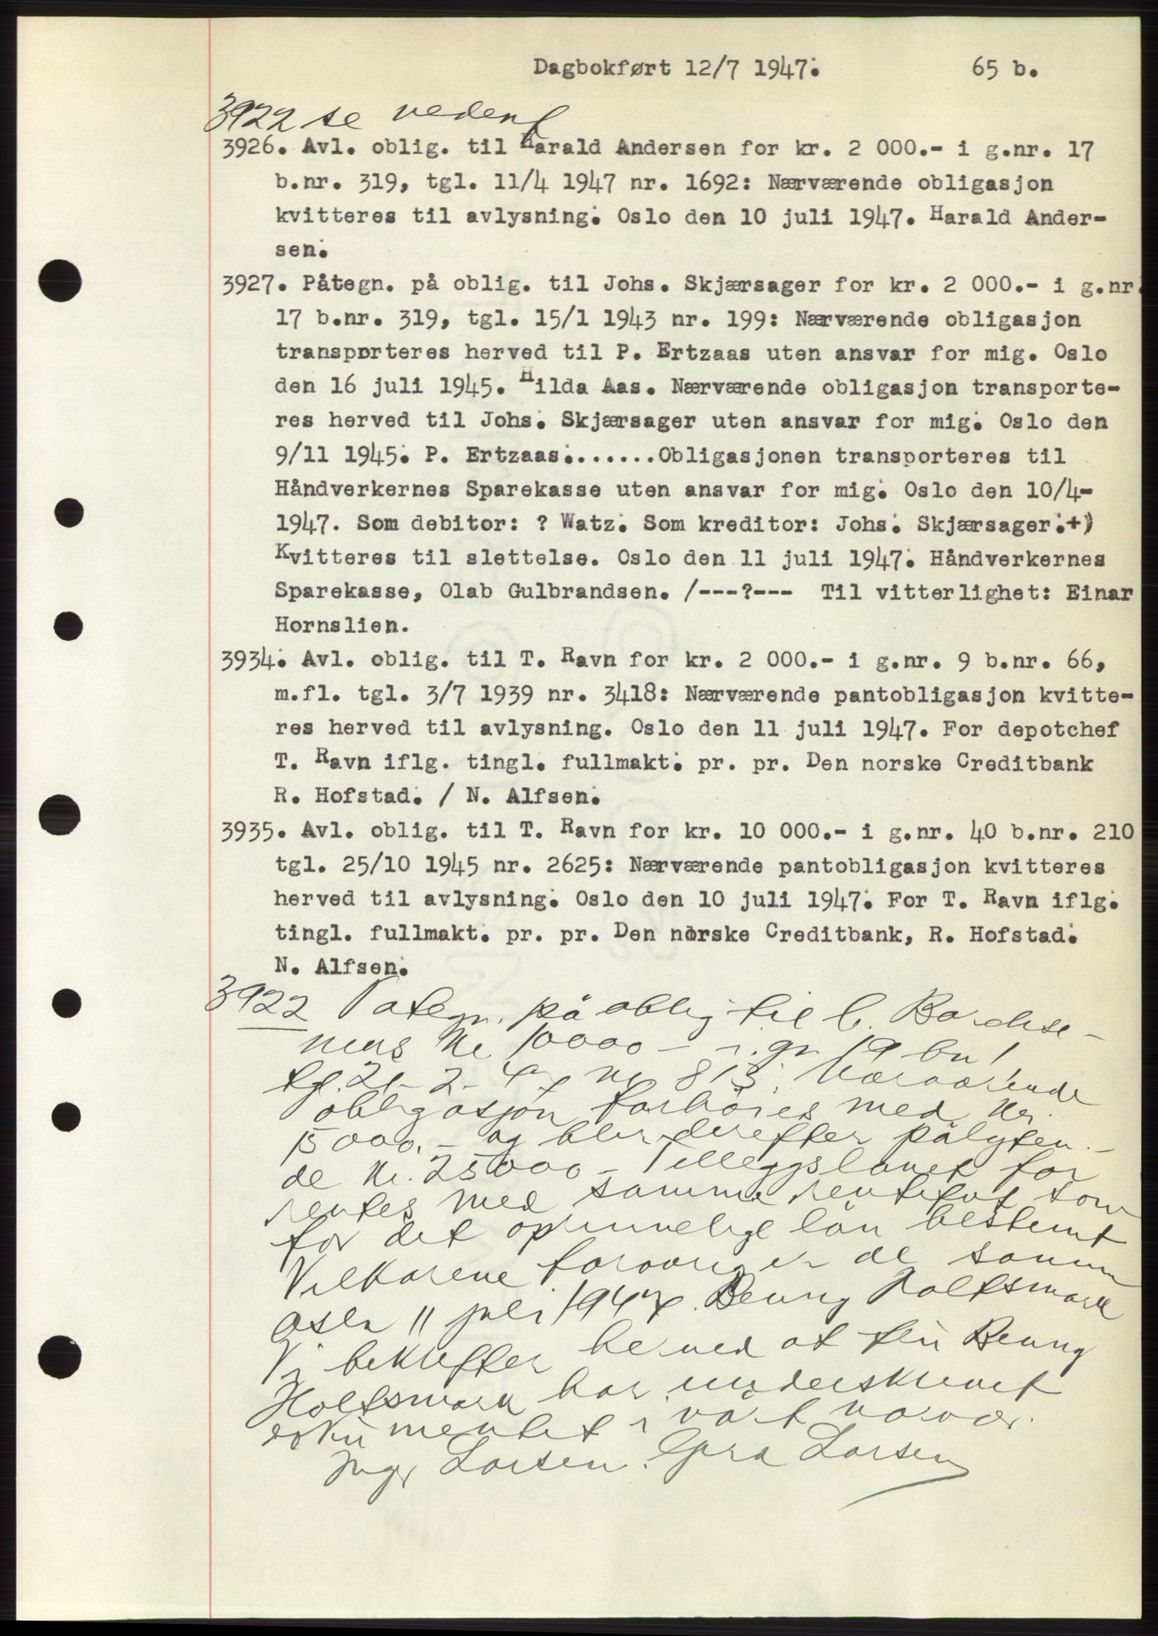 Dagbokført 12/7 1947. 65 b.
3922 se nedenf
3926. Avl. oblig. til Harald Andersen for kr. 2 000.- i g.nr. 17
b.nr. 319, tgl. 11/4 1947 nr. 1692: Nærværende obligasjon
kvitteres til avlysning. Oslo den 10 juli 1947. Harald Ander-
sen.
3927. Påtegn. på oblig. til Johs. Skjærsager for kr. 2 000.- i g.nr.
17 b.nr. 319, tgl. 15/1 1943 nr. 199: Nærværende obligasjon
transporteres herved til P. Ertzaas uten ansvar for mig. Oslo
den 16 juli 1945. Hilda Aas. Nærværende obligasjon transporte-
res herved til Johs. Skjærsager uten ansvar for mig. Oslo den
9/11 1945. P. Ertzaas.......Obligasjonen transporteres til
Håndverkernes Sparekasse uten ansvar for mig. Oslo den 10/4-
1947. Som debitor: ? Watz. Som kreditor: Johs. Skjærsager.+)
Kvitteres til slettelse. Oslo den 11 juli 1947. Håndverkernes
Sparekasse, Olab Gulbrandsen. /---?--- Til vitterlighet: Einar
Hornslien.
3934. Avl. oblig. til T. Ravn for kr. 2 000.- i g.nr. 9 b.nr. 66,
m.fl. tgl. 3/7 1939 nr. 3418: Nærværende pantobligasjon kvitte-
res herved til avlysning. Oslo den 11 juli 1947. For depotchef
T. Ravn iflg. tingl. fullmakt. pr. pr. Den norske Creditbank
R. Hofstad. / N. Alfsen.
3935. Avl. oblig. til T. Ravn for kr. 10 000.- i g.nr. 40 b.nr. 210
tgl. 25/10 1945 nr. 2625: Nærværende pantobligasjon kvitteres
herved til avlysning. Oslo den 10 juli 1947. For T. Ravn iflg.
tingl. fullmakt. pr. pr. Den norske Creditbank, R. Hofstad.
N. Alfsen.
3922 Påtegn. på oblig til
10000 - i gn 19 bn 1
nr 813: Nærværende
obligasjon forhöies med kr.
15000.- og blir derefter pålyden-
de kr. 25000 - Tilleggslånet for
rentes med samme rentefot som
for det oprinnelige lån bestemt
Vilkårene forøvrig er de samme
Oslo 11 juli 1947. Benny Holtsmark
Vi bekrefter herved at Benny
Holtsmark har underskrevet
dokumentet i vårt nærvær.
Inger Larsen. Larsen